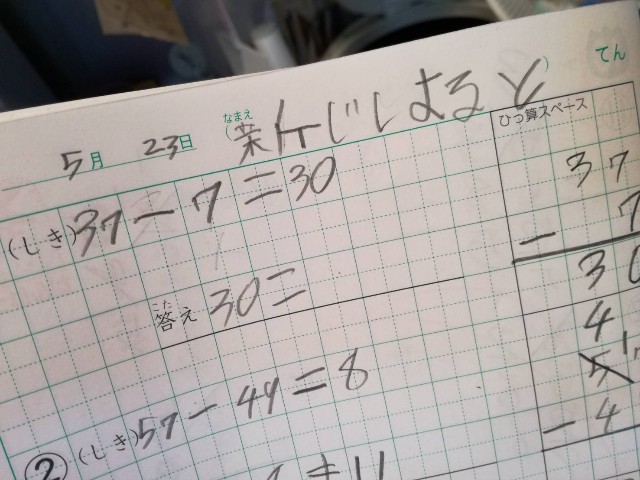 てん
5月 23日 (なまえ )
ひっ算スペース
(しき) 37-7=30
37
- 7
30
答え 30こ
こた
② (しき) 57-49=8
4
5
- 4